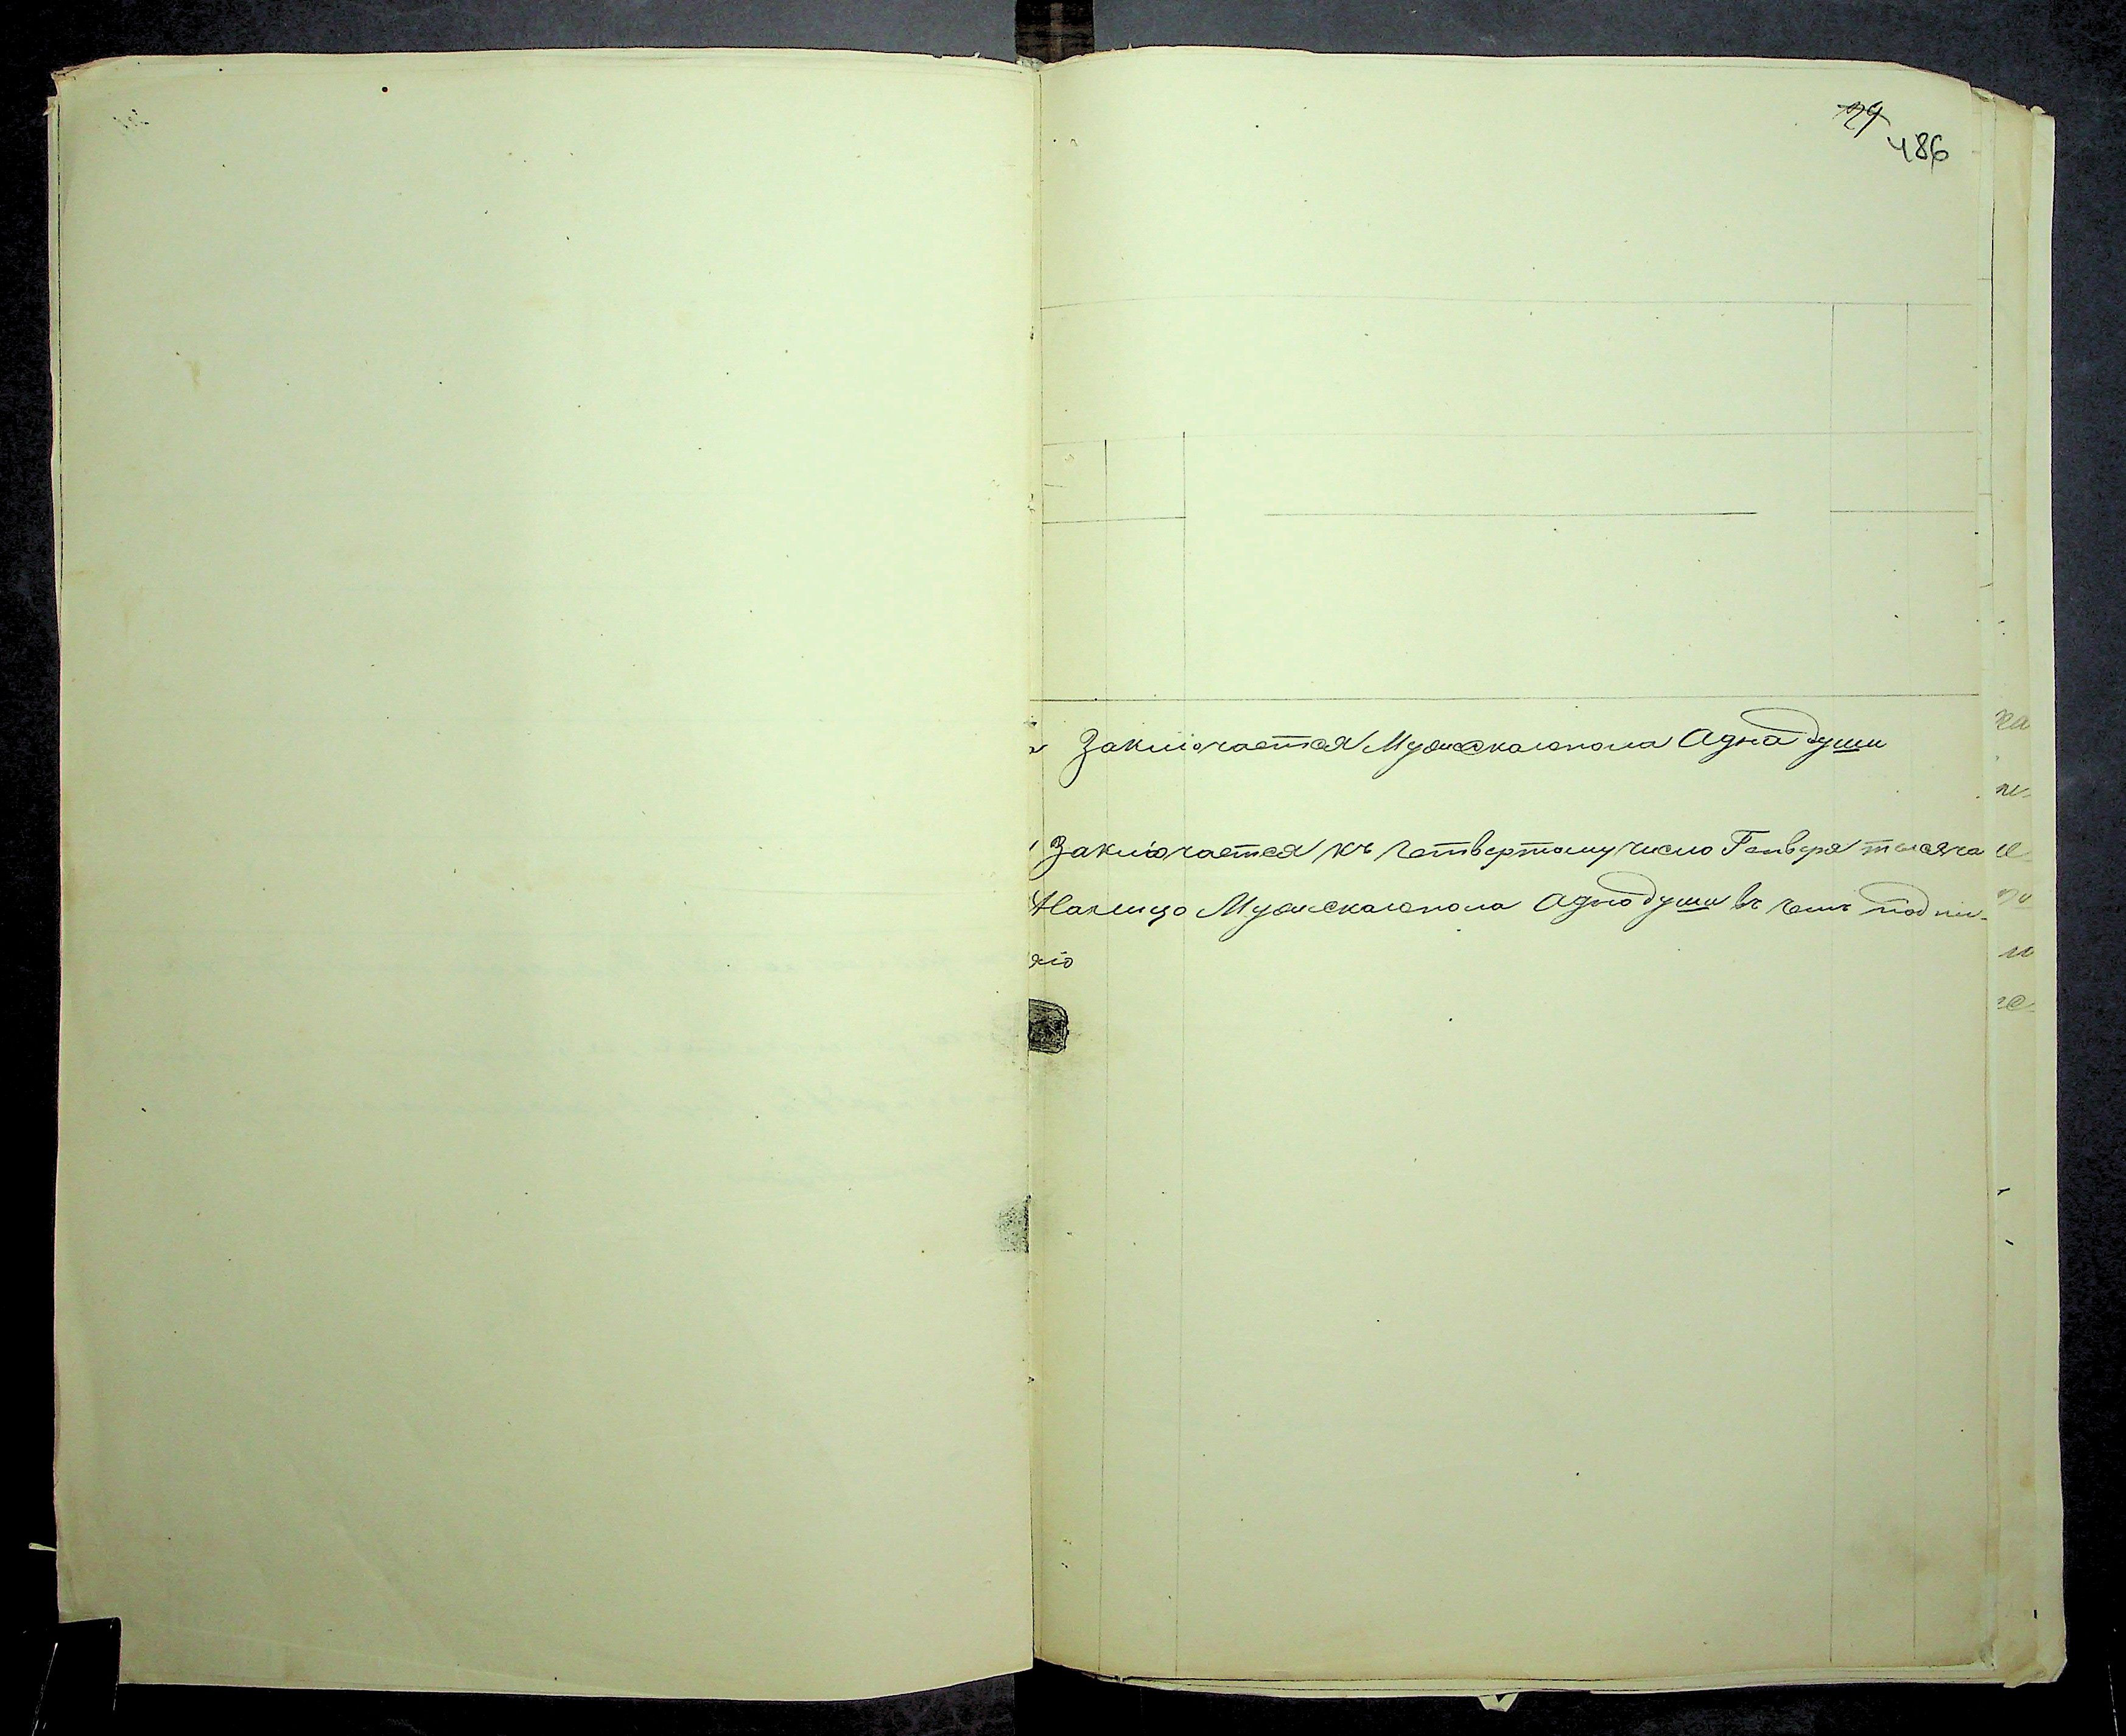 486
Заключается Мужскаго пола Адна души
Заключается къ четвертому число Генверя тысяча
Налицо Мужскаго пола Адно души въ чемъ подпи-